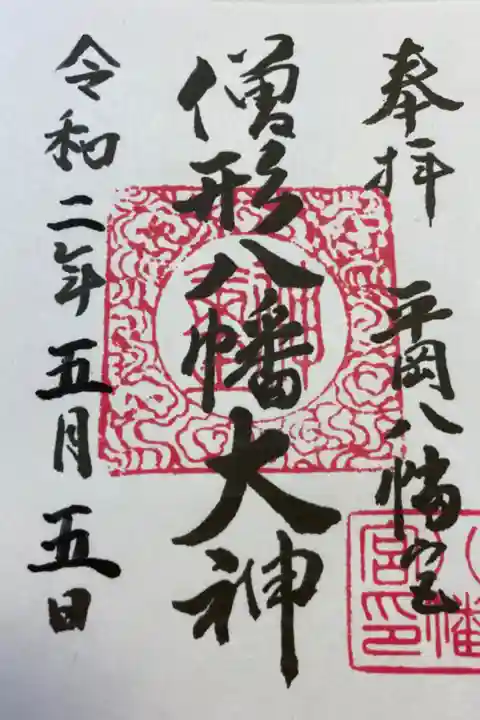 奉拝
平岡八幡宮
僧形八幡大神
令和二年五月五日
八幡
宮印